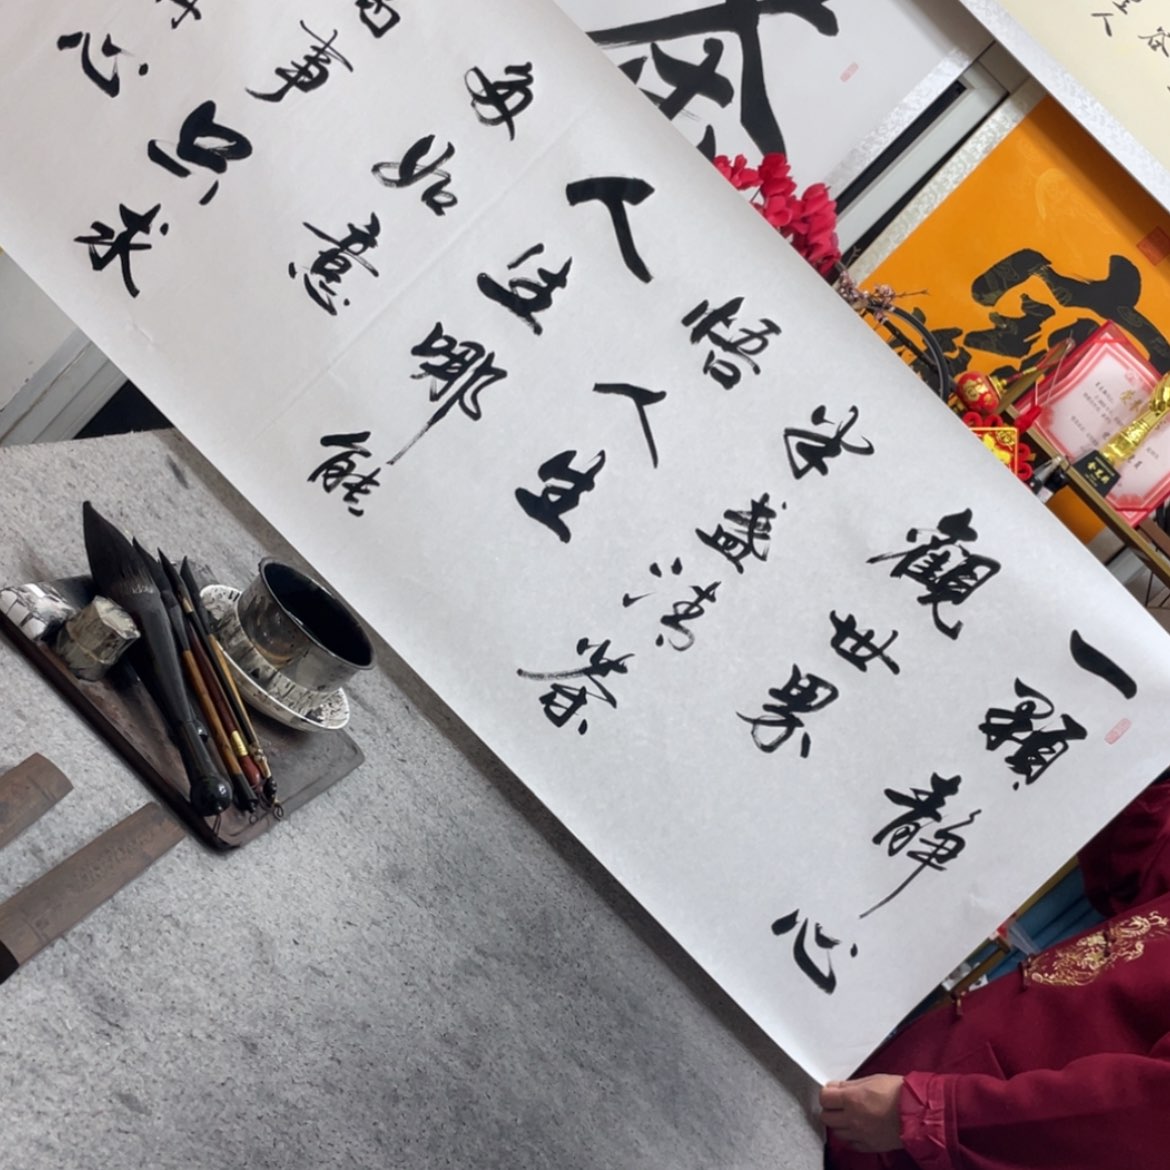 一顆静心
觀世界
半盏清茶
悟人生
人生哪能
多如意
事只求
心